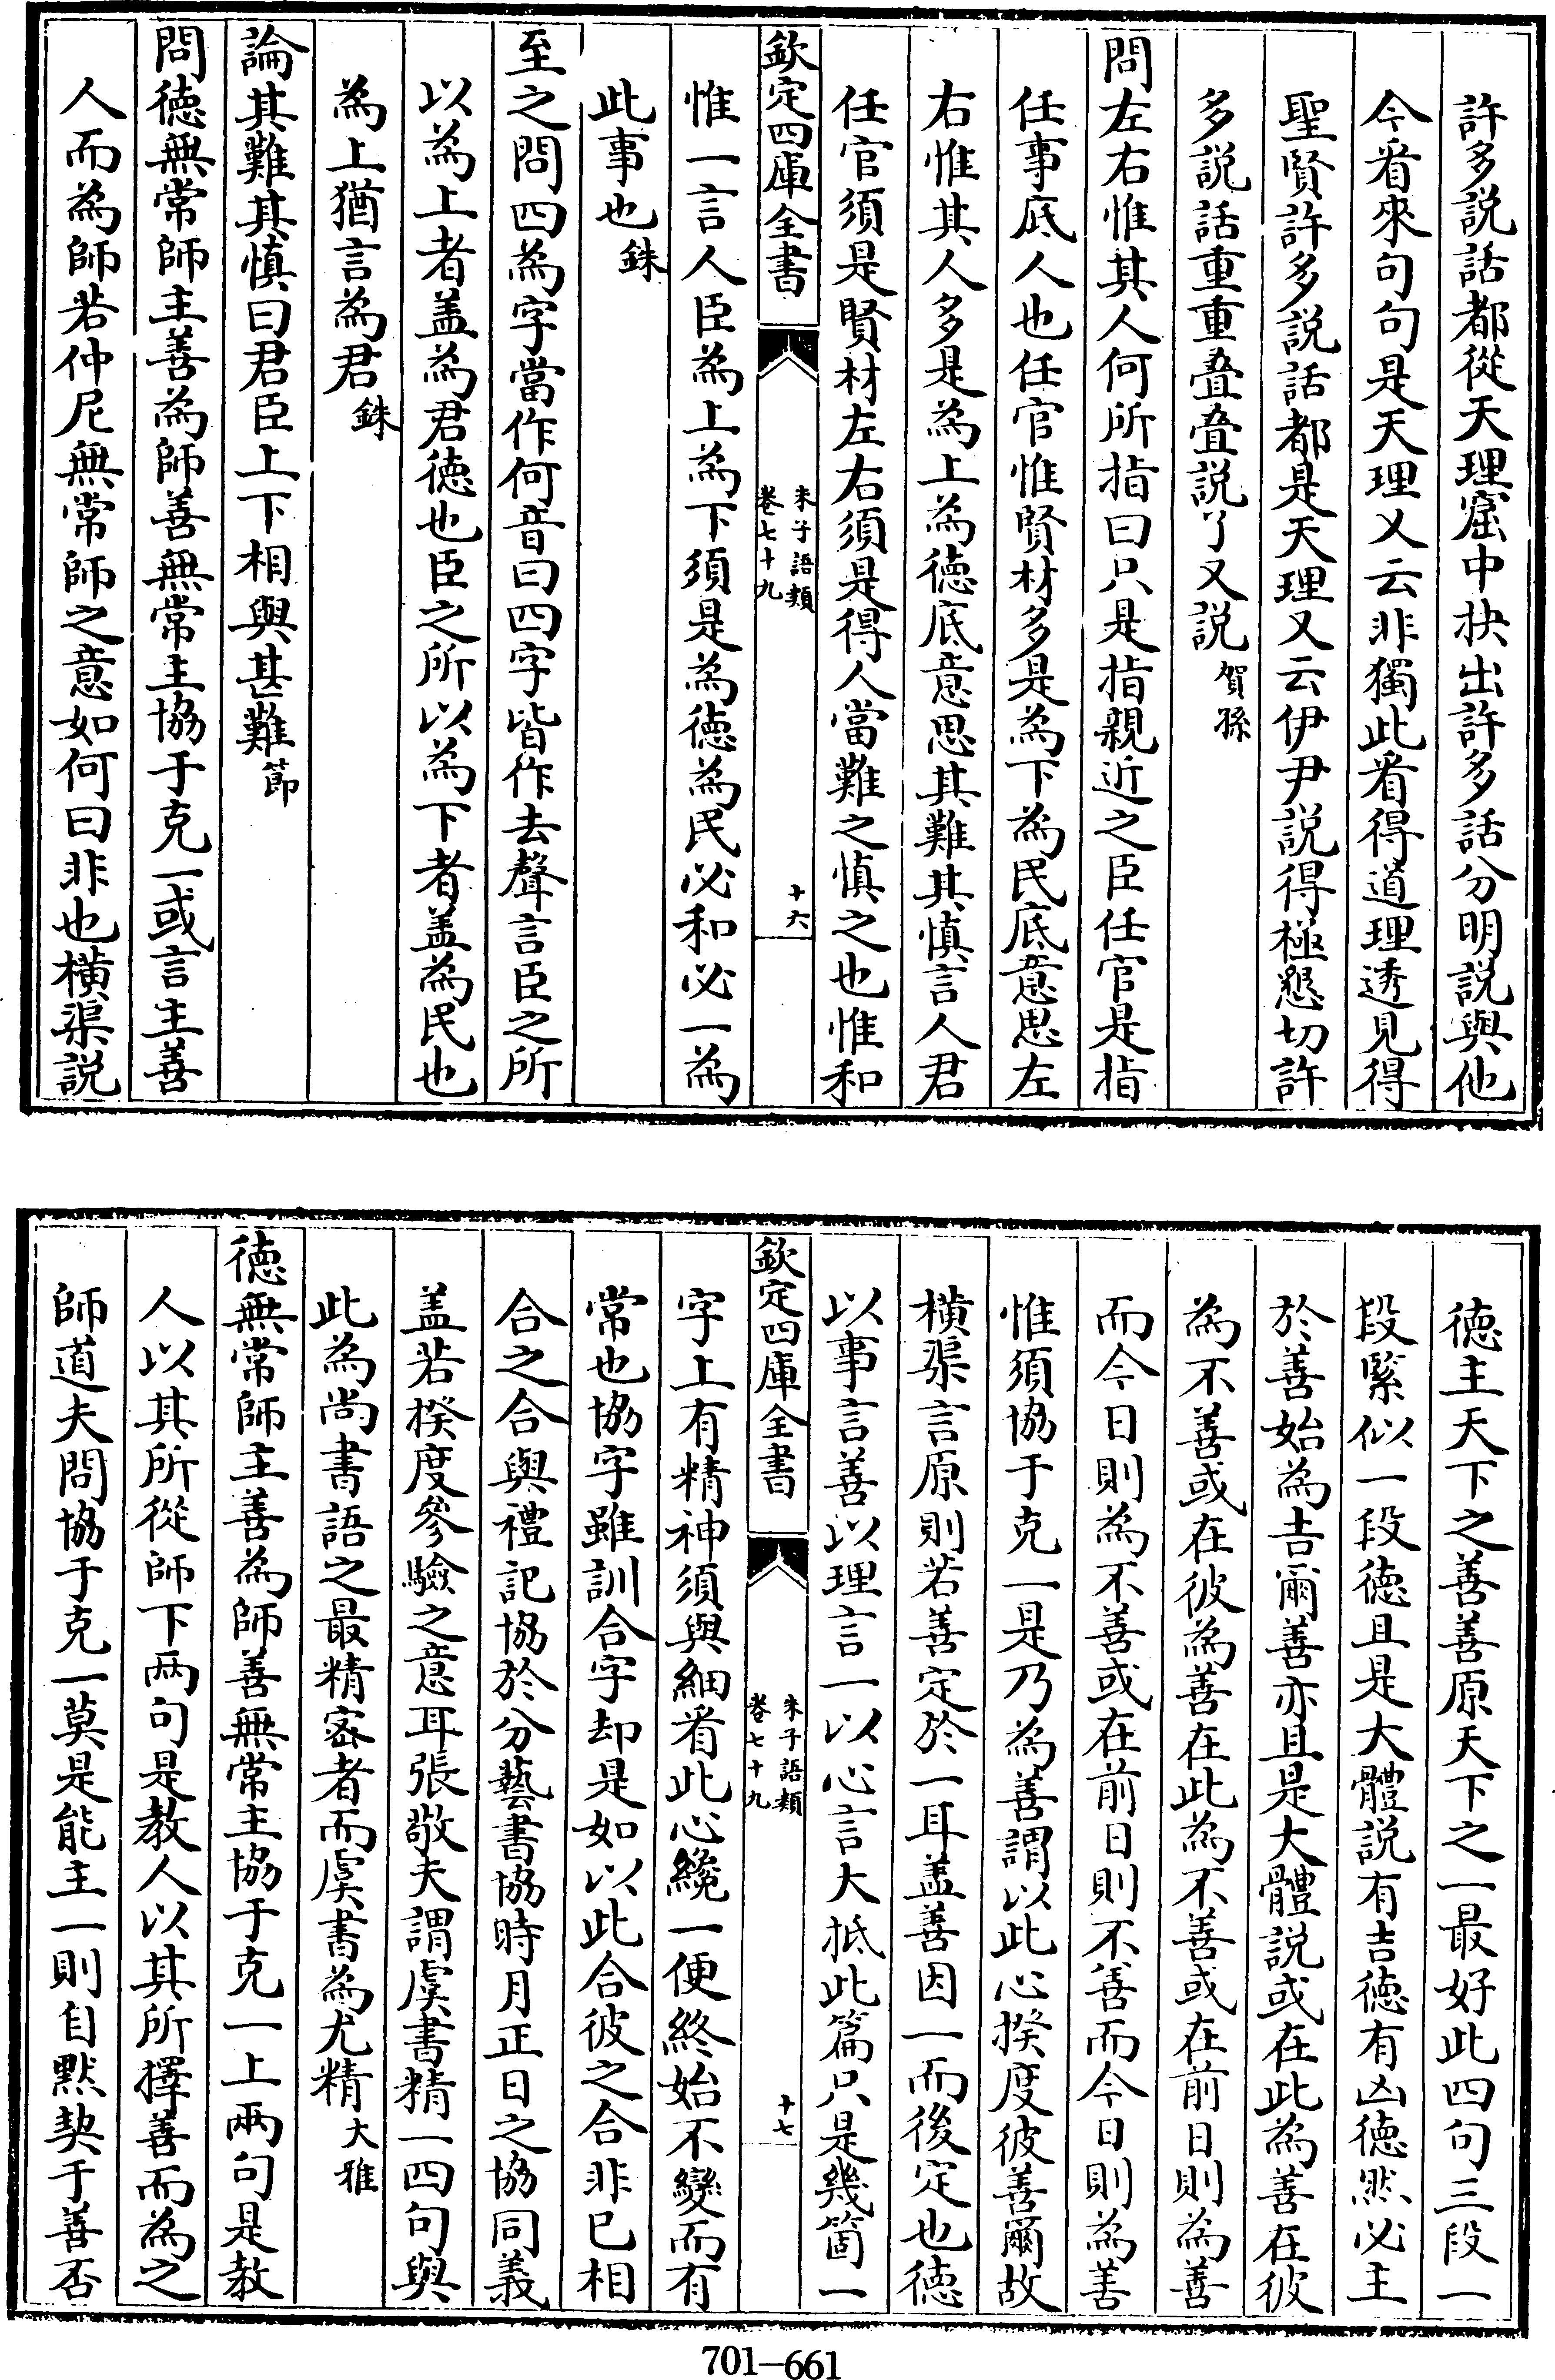 許多説話都從天理窟中抉出許多話分明説與他
今看來句句是天理又云非獨此看得道理透見得
聖賢許多説話都是天理又云伊尹説得極懇切許
多説話重重疊疊説了又説賀孫
問左右惟其人何所指曰只是指親近之臣任官是指
任事底人也任官惟賢材多是為下為民底意思左
右惟其人多是為上為德底意思其難其慎言人君
任官須是賢材左右須是得人當難之慎之也惟和
欽定四庫全書
朱子語類
卷七十九
十六
惟一言人臣為上為下須是為德為民必和必一為
此事也銖
至之問四為字當作何音曰四字皆作去聲言臣之所
以為上者盖為君德也臣之所以為下者盖為民也
為上猶言為君銖
論其難其慎曰君臣上下相與甚難節
問德無常師主善為師善無常主協于克一或言主善
人而為師若仲尼無常師之意如何曰非也横渠説
德主天下之善善原天下之一最好此四句三段一
段緊似一段德且是大體説有吉德有凶德然必主
於善始為吉爾善亦且是大體説或在此為善在彼
為不善或在彼為善在此為不善或在前日則為善
而今日則為不善或在前日則不善而今日則為善
惟須協于克一是乃為善謂以此心揆度彼善爾故
横渠言原則若善定於一耳盖善因一而後定也德
以事言善以理言一以心言大抵此篇只是幾箇一
欽定四庫全書
朱子語類
卷七十九
十七
字上有精神須與細看此心纔一便終始不變而有
常也協字雖訓合字却是如以此合彼之合非已相
合之合與禮記協於分藝書協時月正日之協同義
盖若揆度參驗之意耳張敬夫謂虞書精一四句與
此為尚書語之最精宻者而虞書為尤精大雅
德無常師主善為師善無常主協于克一上兩句是教
人以其所從師下兩句是教人以其所擇善而為之
師道夫問協于克一莫是能主一則自黙契于善否
701—661